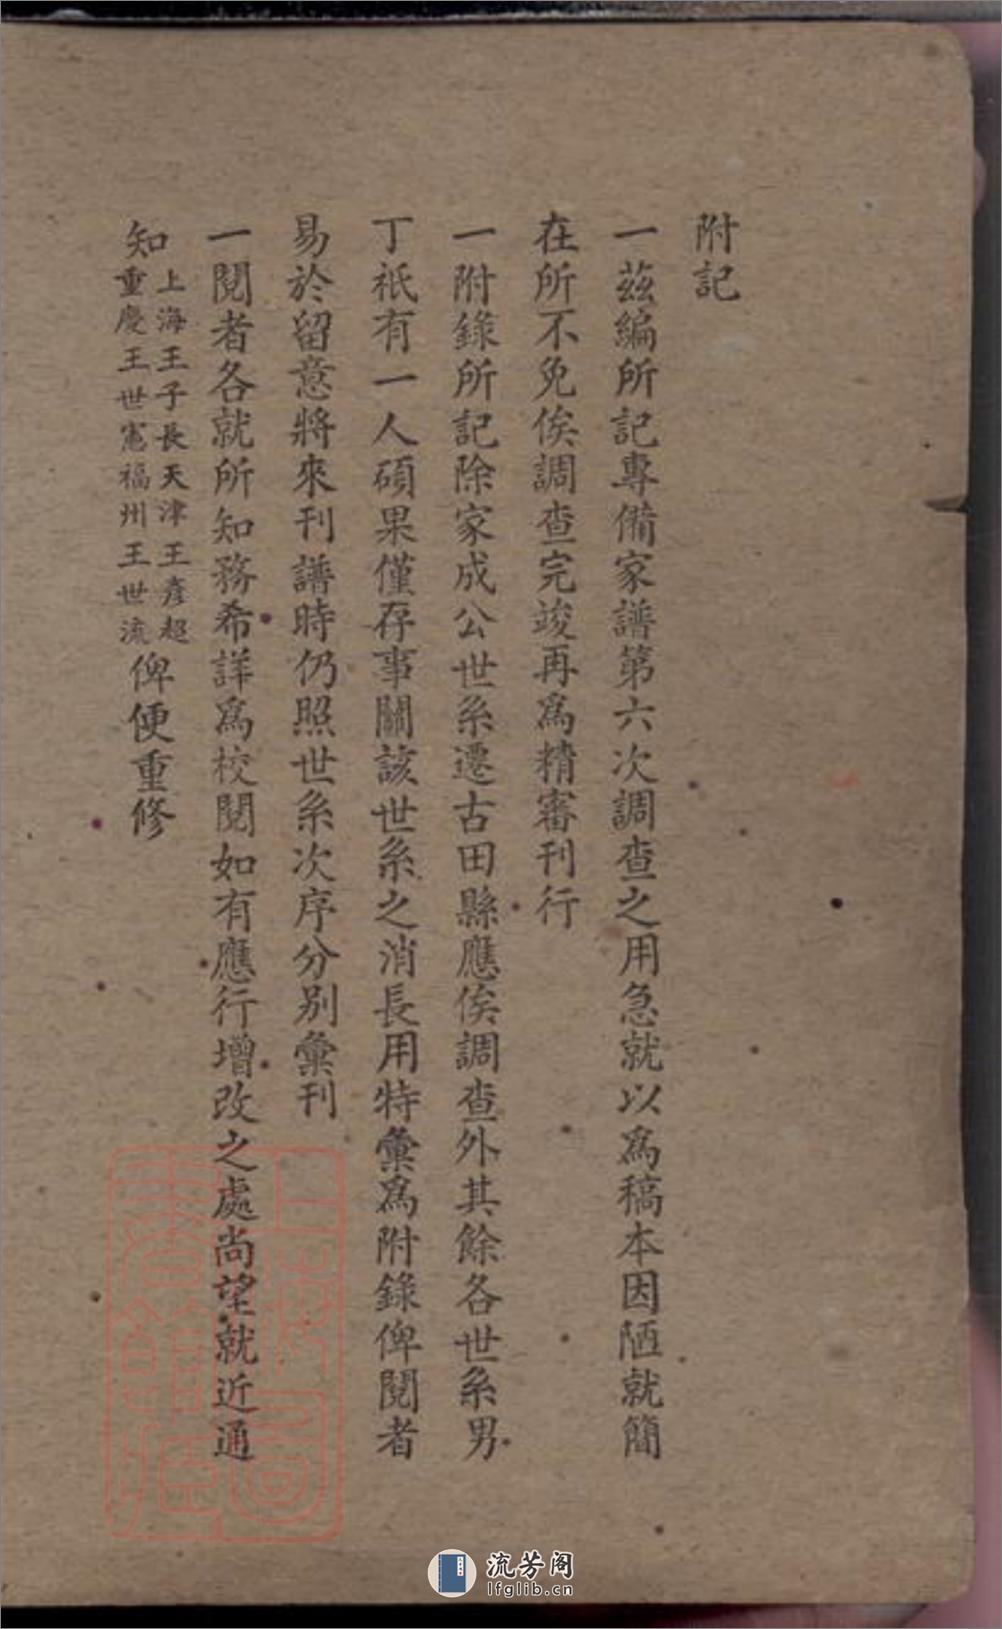 附記
一茲編所記專備家譜第六次調查之用急就以爲稿本因陋就簡
在所不免俟調查完竣再爲精審刊行
一附錄所記除家成公世系遷古田縣應俟調查外其餘各世系男
丁祇有一人碩果僅存事關該世系之消長用特彙爲附錄俾閱者
易於留意將來刊譜時仍照世系次序分別彙刊
一閱者各就所知務希詳爲校閱如有應行增改之處尚望就近通
知上海王子長天津王彥超重慶王世憲福州王世流俾便重修
上海圖書館藏
流芳阁
lfglib.cn